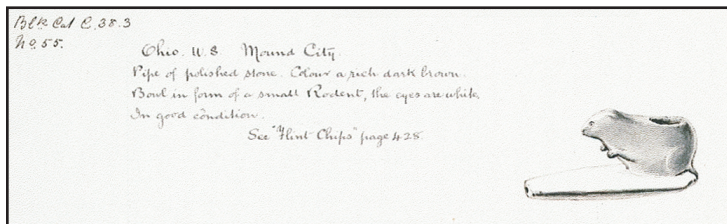 Blk Cat C. 38.3
No. 55.
Ohio. U.S. Mound City.
Pipe of polished stone. Colour a rich dark brown.
Bowl in form of a small Rodent, the eyes are white.
In good condition.
See "Flint Chips" page 428